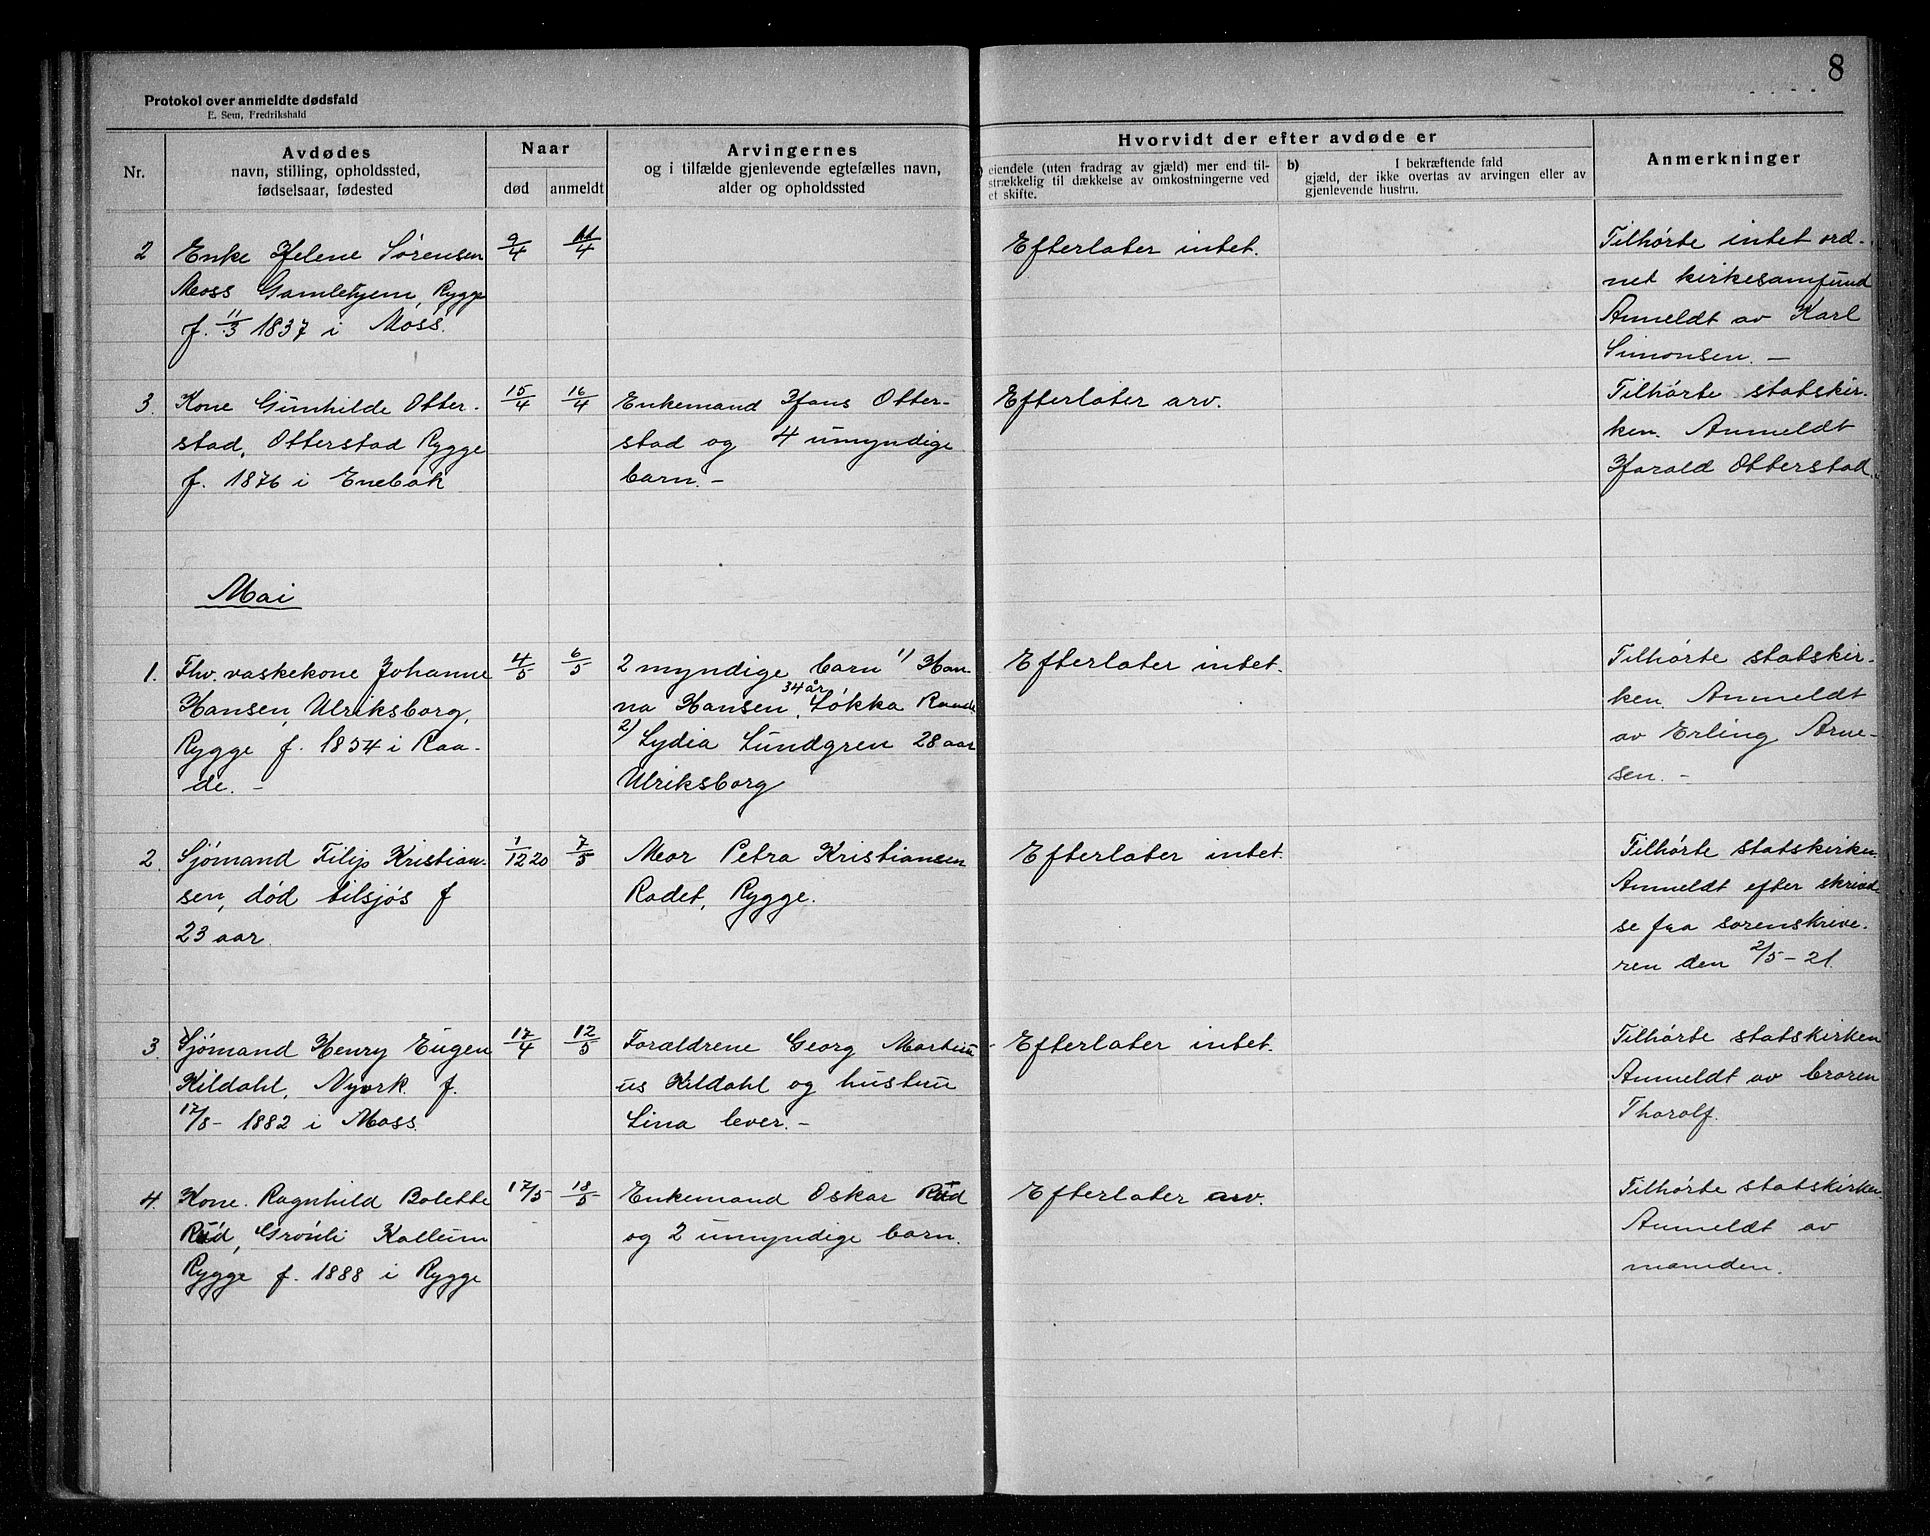 8
Protokol over anmeldte dødsfald
E. Sem, Fredrikshald
Nr.
Avdødes
navn, stilling, opholdssted,
fødselsaar, fødested
Naar
død
anmeldt
Arvingernes
og i tilfælde gjenlevende egtefælles navn,
alder og opholdssted
Hvorvidt der efter avdøde er
eiendele (uten fradrag av gjæld) mer end til-
strækkelig til dækkelse av omkostningerne ved
et skifte.
b) I bekræftende fald
gjæld, der ikke overtas av arvingen eller av
gjenlevende hustru.
Anmerkninger
2
Enke Helene Sørensen
Moss Gamlehjem, Rygge
f. 11/3 1837 i Moss.
9/4
11/4
Efterlater intet.
Tilhørte intet ord-
net kirkesamfund
Anmeldt av Karl
Simonsen. —
3.
Kone Gunhilde Otter-
stad, Otterstad Rygge
f. 1876 i Enebak
15/4
16/4
Enkemand Hans Otter-
stad og 4 umyndige
barn. —
Efterlater arv.
Tilhørte statskir-
ken. Anmeldt
Harald Otterstad.
Mai
1.
Fhv. vaskekone Johanne
Hansen, Ulriksborg,
Rygge f. 1854 i Raa-
de. —
4/5
6/5
2 myndige barn 1) Han-
na Hansen, 34 år Løkka Raade
2) Lydia Lundgren 28 aar
Ulriksborg
Efterlater intet.
Tilhørte statskir-
ken. Anmeldt
av Erling Arne-
sen. —
2.
Sjømand Filip Kristian-
sen, død tilsjøs f
23 aar.
1/12 20
7/5
Mor Petra Kristiansen
Rødet, Rygge.
Efterlater intet.
Tilhørte statskirken.
Anmeldt efter skrivel-
se fra sorenskrive-
ren den 2/5 - 21.
3.
Sjømand Henry Eugen
Kildahl, Nyork. f.
17/8 - 1882 i Moss.
17/4
12/5
Forældrene Georg Martin-
us Kildahl og hustru
Lina lever. —
Efterlater intet.
Tilhørte statskirken
Anmeldt av broren
Thoralf.
4.
Kone. Ragnhild Bolette
Rød, Grønli Kallum
Rygge f. 1888 i Rygge
17/5
18/5
Enkemand Oskar Rød
og 2 umyndige barn.
Efterlater arv.
Tilhørte statskirken
Anmeldt av
manden.